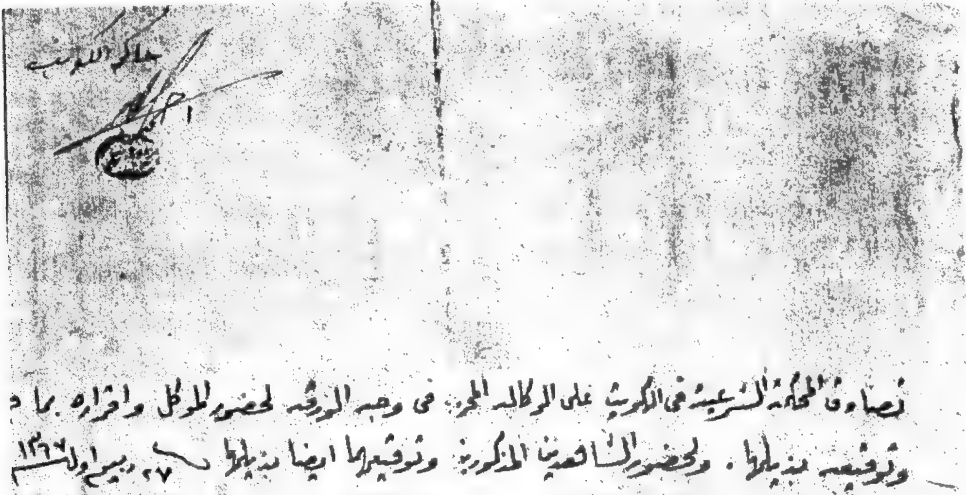 حاكم الكويت
تصادق المحكمة الشرعية في الكويت على الوكاله المحررة في وجه الورقه لحضور الموكل واقراره بما د
وتوقيعه بذيلها . ولحضور الشاهدين المذكورين وتوقيعهما ايضا بذيلها ٢٧ ربيع اول ١٣٦٧